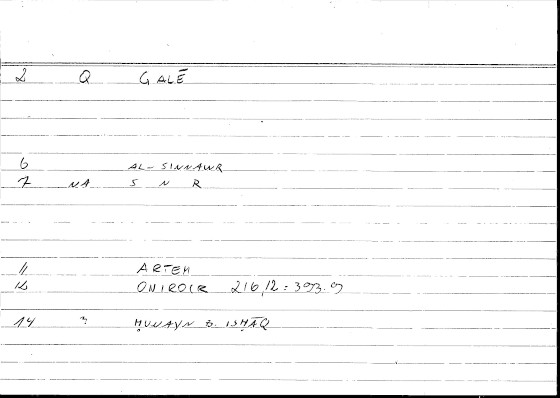 2 Q GALĒ
6 AL-SINNAWR
7 NA S N R
11 ARTEM
12 ONIROCR 216,12 = 393.9
14 " ḤUNAYN B. ISḤĀQ